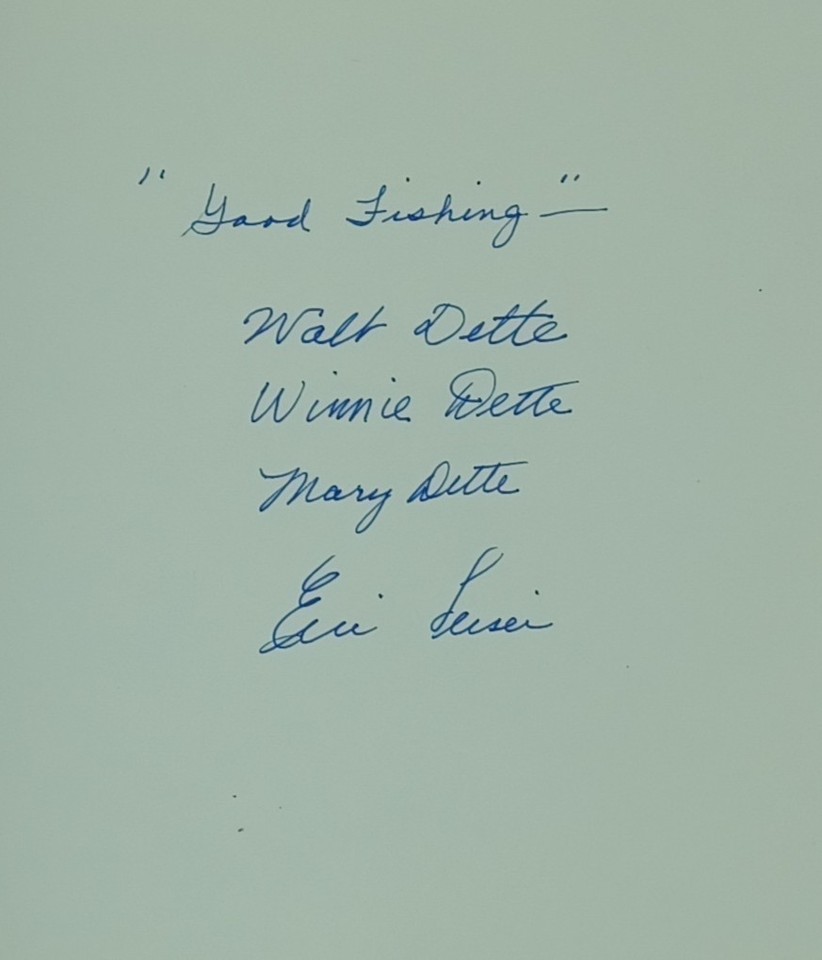 "Good Fishing" —
Walt Dette
Winnie Dette
Mary Dette
Eric Leiser